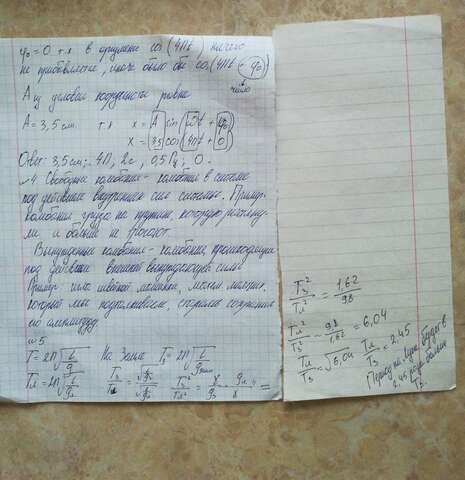 φ₀ = 0 т.к в аргументе cos (4Пt) ничего
не прибавляется, иначе было бы cos(4Пt + φ₀)
число
A из условия
равна
A = 3,5 см. т.к x = A sin(ωt + φ₀)
x = 3,5 cos(4Пt + 0)
Ответ: 3,5 см; 4П; 2с, 0,5 Гц; 0.
№4 Свободные колебания - колебания в системе
под действием внутренних сил системы. Пример:
колебания груза на пружине, которую растяну-
ли и больше не трогают.
Вынужденные колебания - колебания, происходящие
под действием внешней вынуждающей силы
Пример игла швейной машинки, маятник
который мы подталкиваем, стараясь сохранить
его амплитуду
№5
T = 2П√(l/g) На Земле Tз = 2П√(l/g)
Tл = 2П√(l/gл)
Tз²/Tл² = 1,62/9,8
Tл²/Tз² = 9,8/1,62 = 6,04
Tл/Tз = √6,04 Tл/Tз = 2.45
Период на Луне будет в
2.45 раза больше